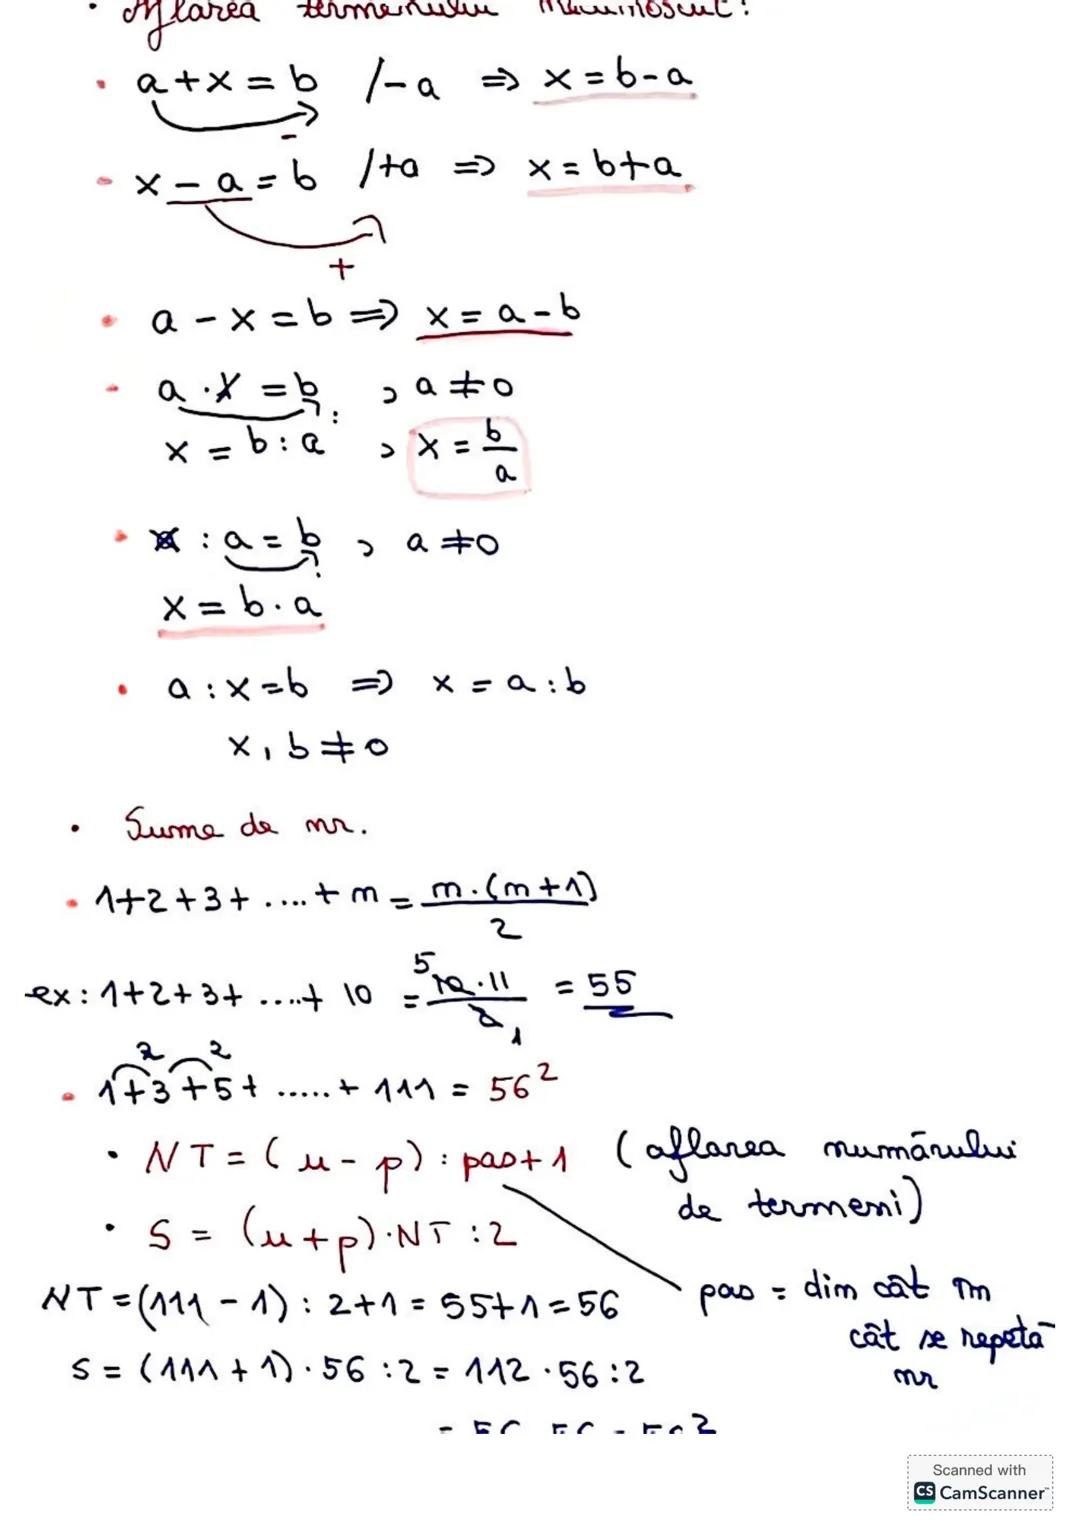 • Aflarea termenului necunoscut:
• a+x=b /-a ⇒ x=b-a
-
- x-a=b /+a ⇒ x=b+a
+
• a-x=b ⇒ x=a-b
- a·x=b , a≠0
:
x=b:a , x=b/a
• x:a=b , a≠0
x=b·a
• a:x=b ⇒ x=a:b
x, b≠0
• Sume de nr.
• 1+2+3+....+n=n·(n+1)/2
ex: 1+2+3+....+ 10 = 5 10·11/2 1 = 55
2 2
• 1+3+5+.....+ 111 = 56²
• NT=(u-p):pas+1 (aflarea numărului
de termeni)
• S = (u+p)·NT:2
NT=(111-1):2+1=55+1=56
pas = din cât în
cât se repetă
nr
S=(111+1)·56:2=112·56:2
= 56·56=56²
Scanned with
CS CamScanner